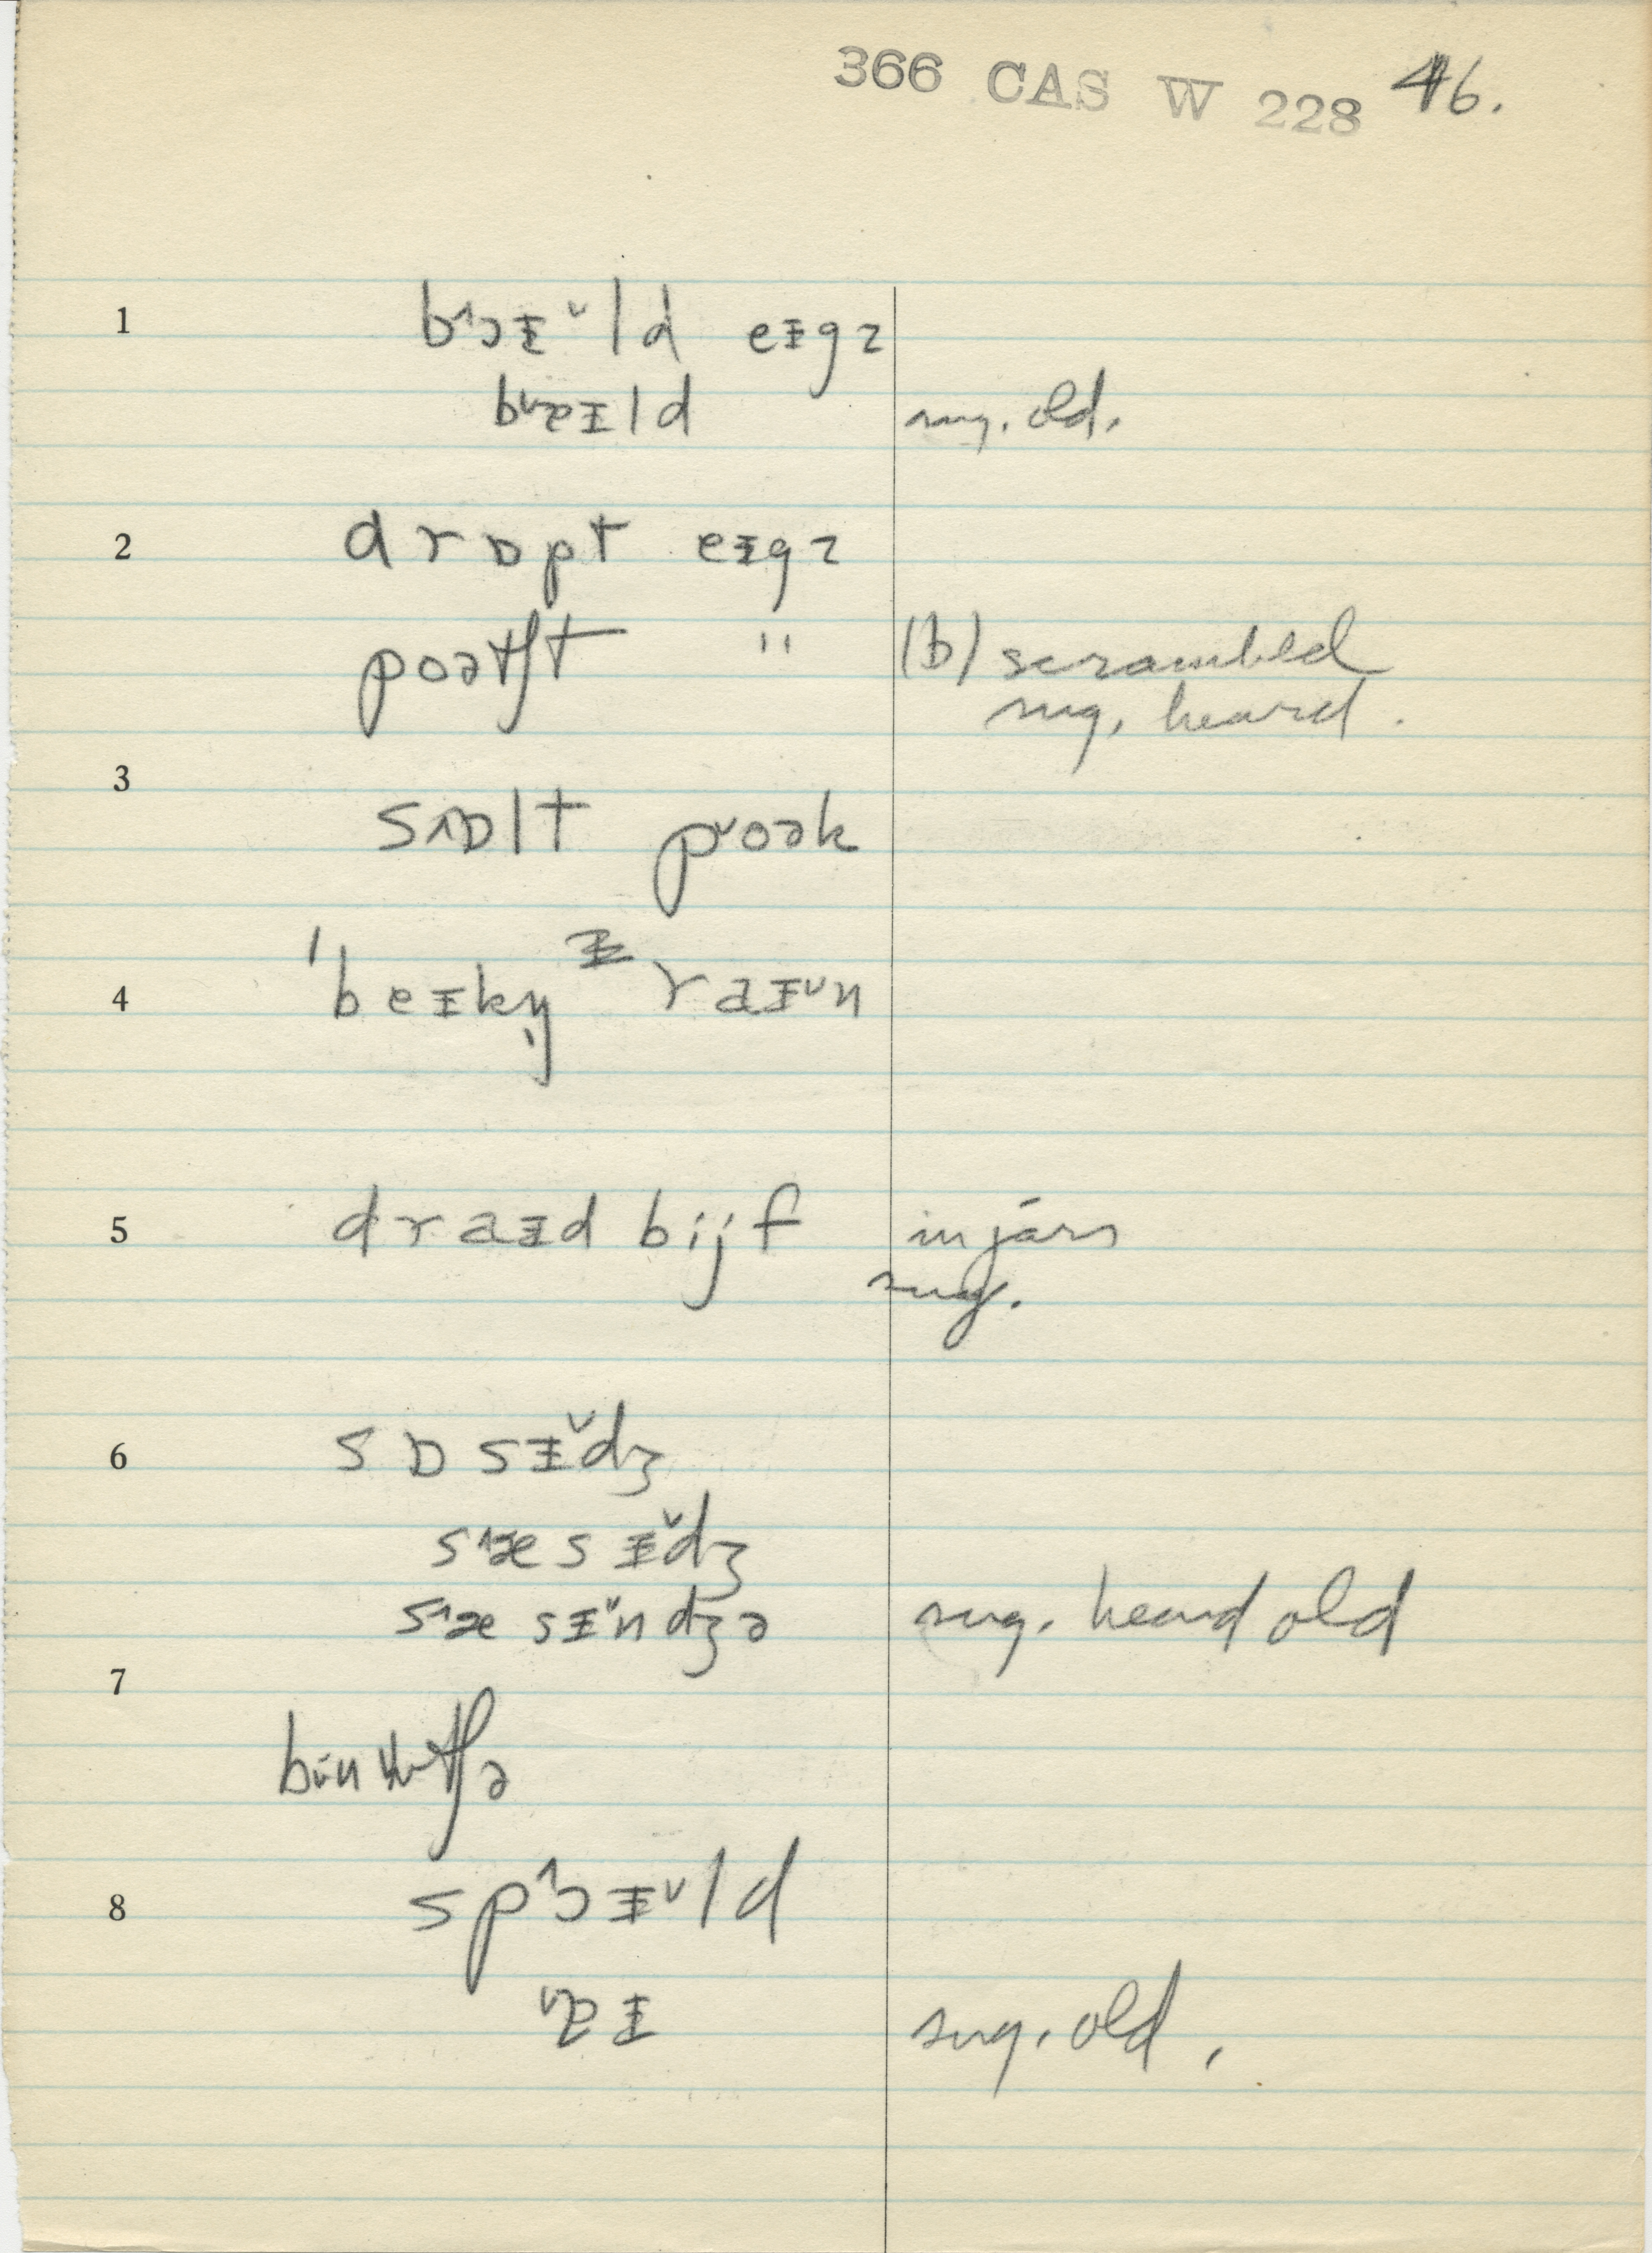 366 CAS W 228 46.
1 b˄ɔᵻ˅ld eᵻgz
b˅ɐᵻld sug. old.
2 drɒpt eᵻgz
poətʃt " (b) scrambled
sug. heard.
3
s˄ɒlt p˅oək
4 'beᵻkn̩ ᵻ raᵻ˅n
5 draᵻd bijf in jars
sug.
6 sɒsᵻ˅dʒ
s˄æsᵻ˅dʒ
s˄æsᵻ˅ndʒə sug. heard old
7
8 sp˄ɔᵻ˅ld
˅ɐᵻ sug. old.